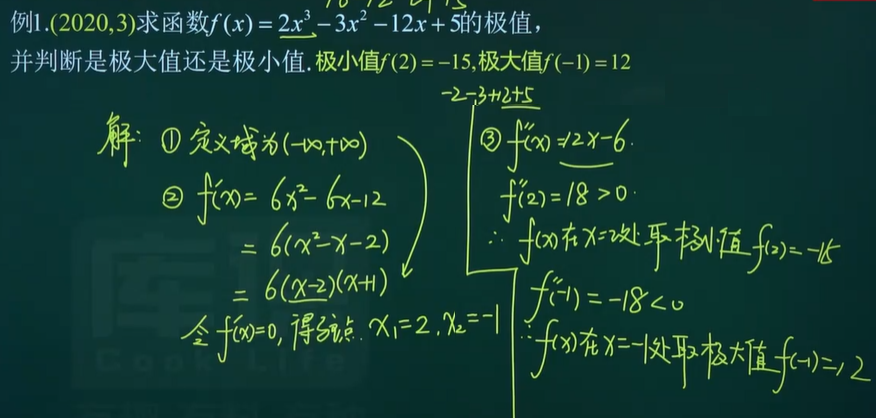 例1.(2020,3)求函数f(x)=2x³-3x²-12x+5的极值，
并判断是极大值还是极小值.极小值f(2)=-15,极大值f(-1)=12
-2-3+12+5
解: ① 定义域为(-∞,+∞)
② f'(x)= 6x²-6x-12
= 6(x²-x-2)
= 6(x-2)(x+1)
令f'(x)=0, 得驻点. x₁=2, x₂=-1
③ f''(x)=12x-6.
f''(2)=18>0.
∴ f(x)在x=2处取极小值f(2)=-15
f''(-1)=-18<0
∴f(x)在x=-1处取极大值f(-1)=12
库课
Cook Life